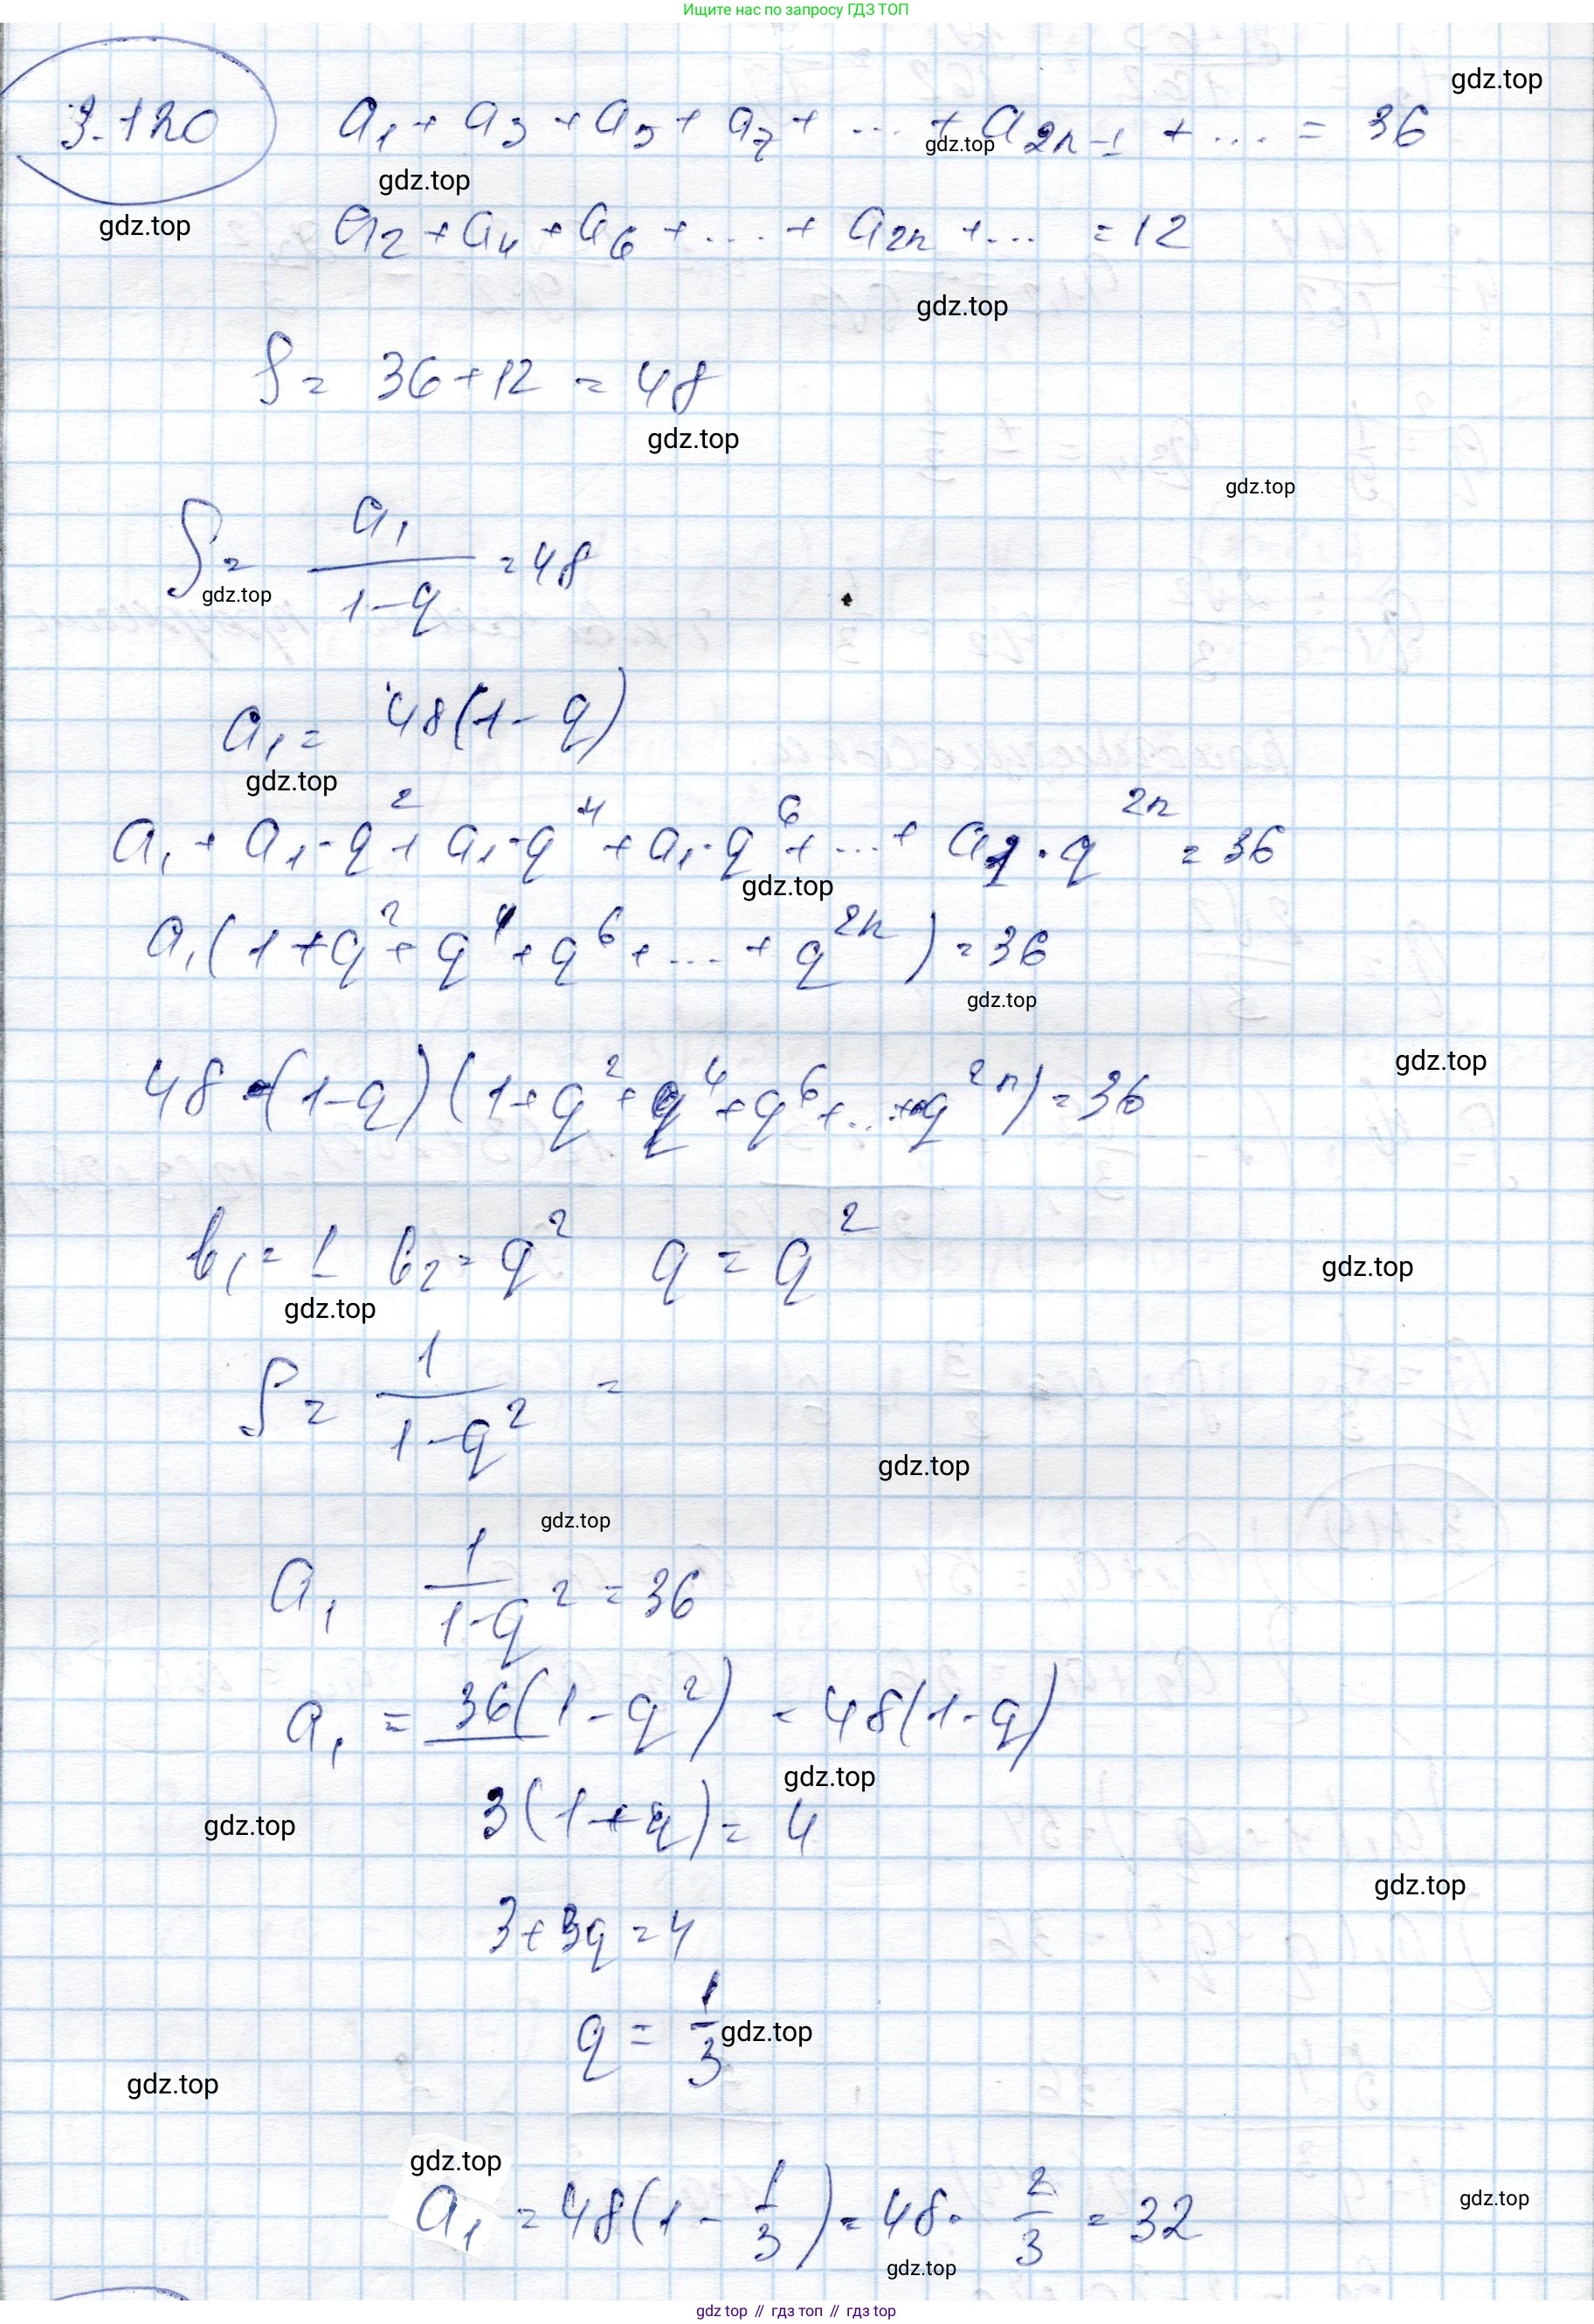 Ищите нас по запросу ГДЗ ТОП
gdz.top
3.120 a₁ + a₃ + a₅ + a₇ + ... + a₂ₙ₋₁ + ... = 36
gdz.top
gdz.top
gdz.top
a₂ + a₄ + a₆ + ... + a₂ₙ + ... = 12
gdz.top
S = 36 + 12 = 48
gdz.top
gdz.top
S = a₁/(1-q) = 48
gdz.top
a₁ = 48(1-q)
gdz.top
a₁ + a₁·q² + a₁·q⁴ + a₁·q⁶ + ... + a₁·q²ⁿ = 36
gdz.top
a₁(1 + q² + q⁴ + q⁶ + ... + q²ⁿ) = 36
gdz.top
gdz.top
48·(1-q)(1 + q² + q⁴ + q⁶ + ... + q²ⁿ) = 36
b₁ = 1 b₂ = q² q = q²
gdz.top
gdz.top
S = 1/(1-q²) =
gdz.top
gdz.top
a₁ 1/(1-q²) = 36
a₁ = 36(1-q²) = 48(1-q)
gdz.top
3(1+q) = 4
gdz.top
gdz.top
3+3q = 4
q = 1/3
gdz.top
gdz.top
gdz.top
a₁ = 48(1 - 1/3) = 48· 2/3 = 32
gdz.top
gdz.top
gdz.top // гдз топ // гдз top